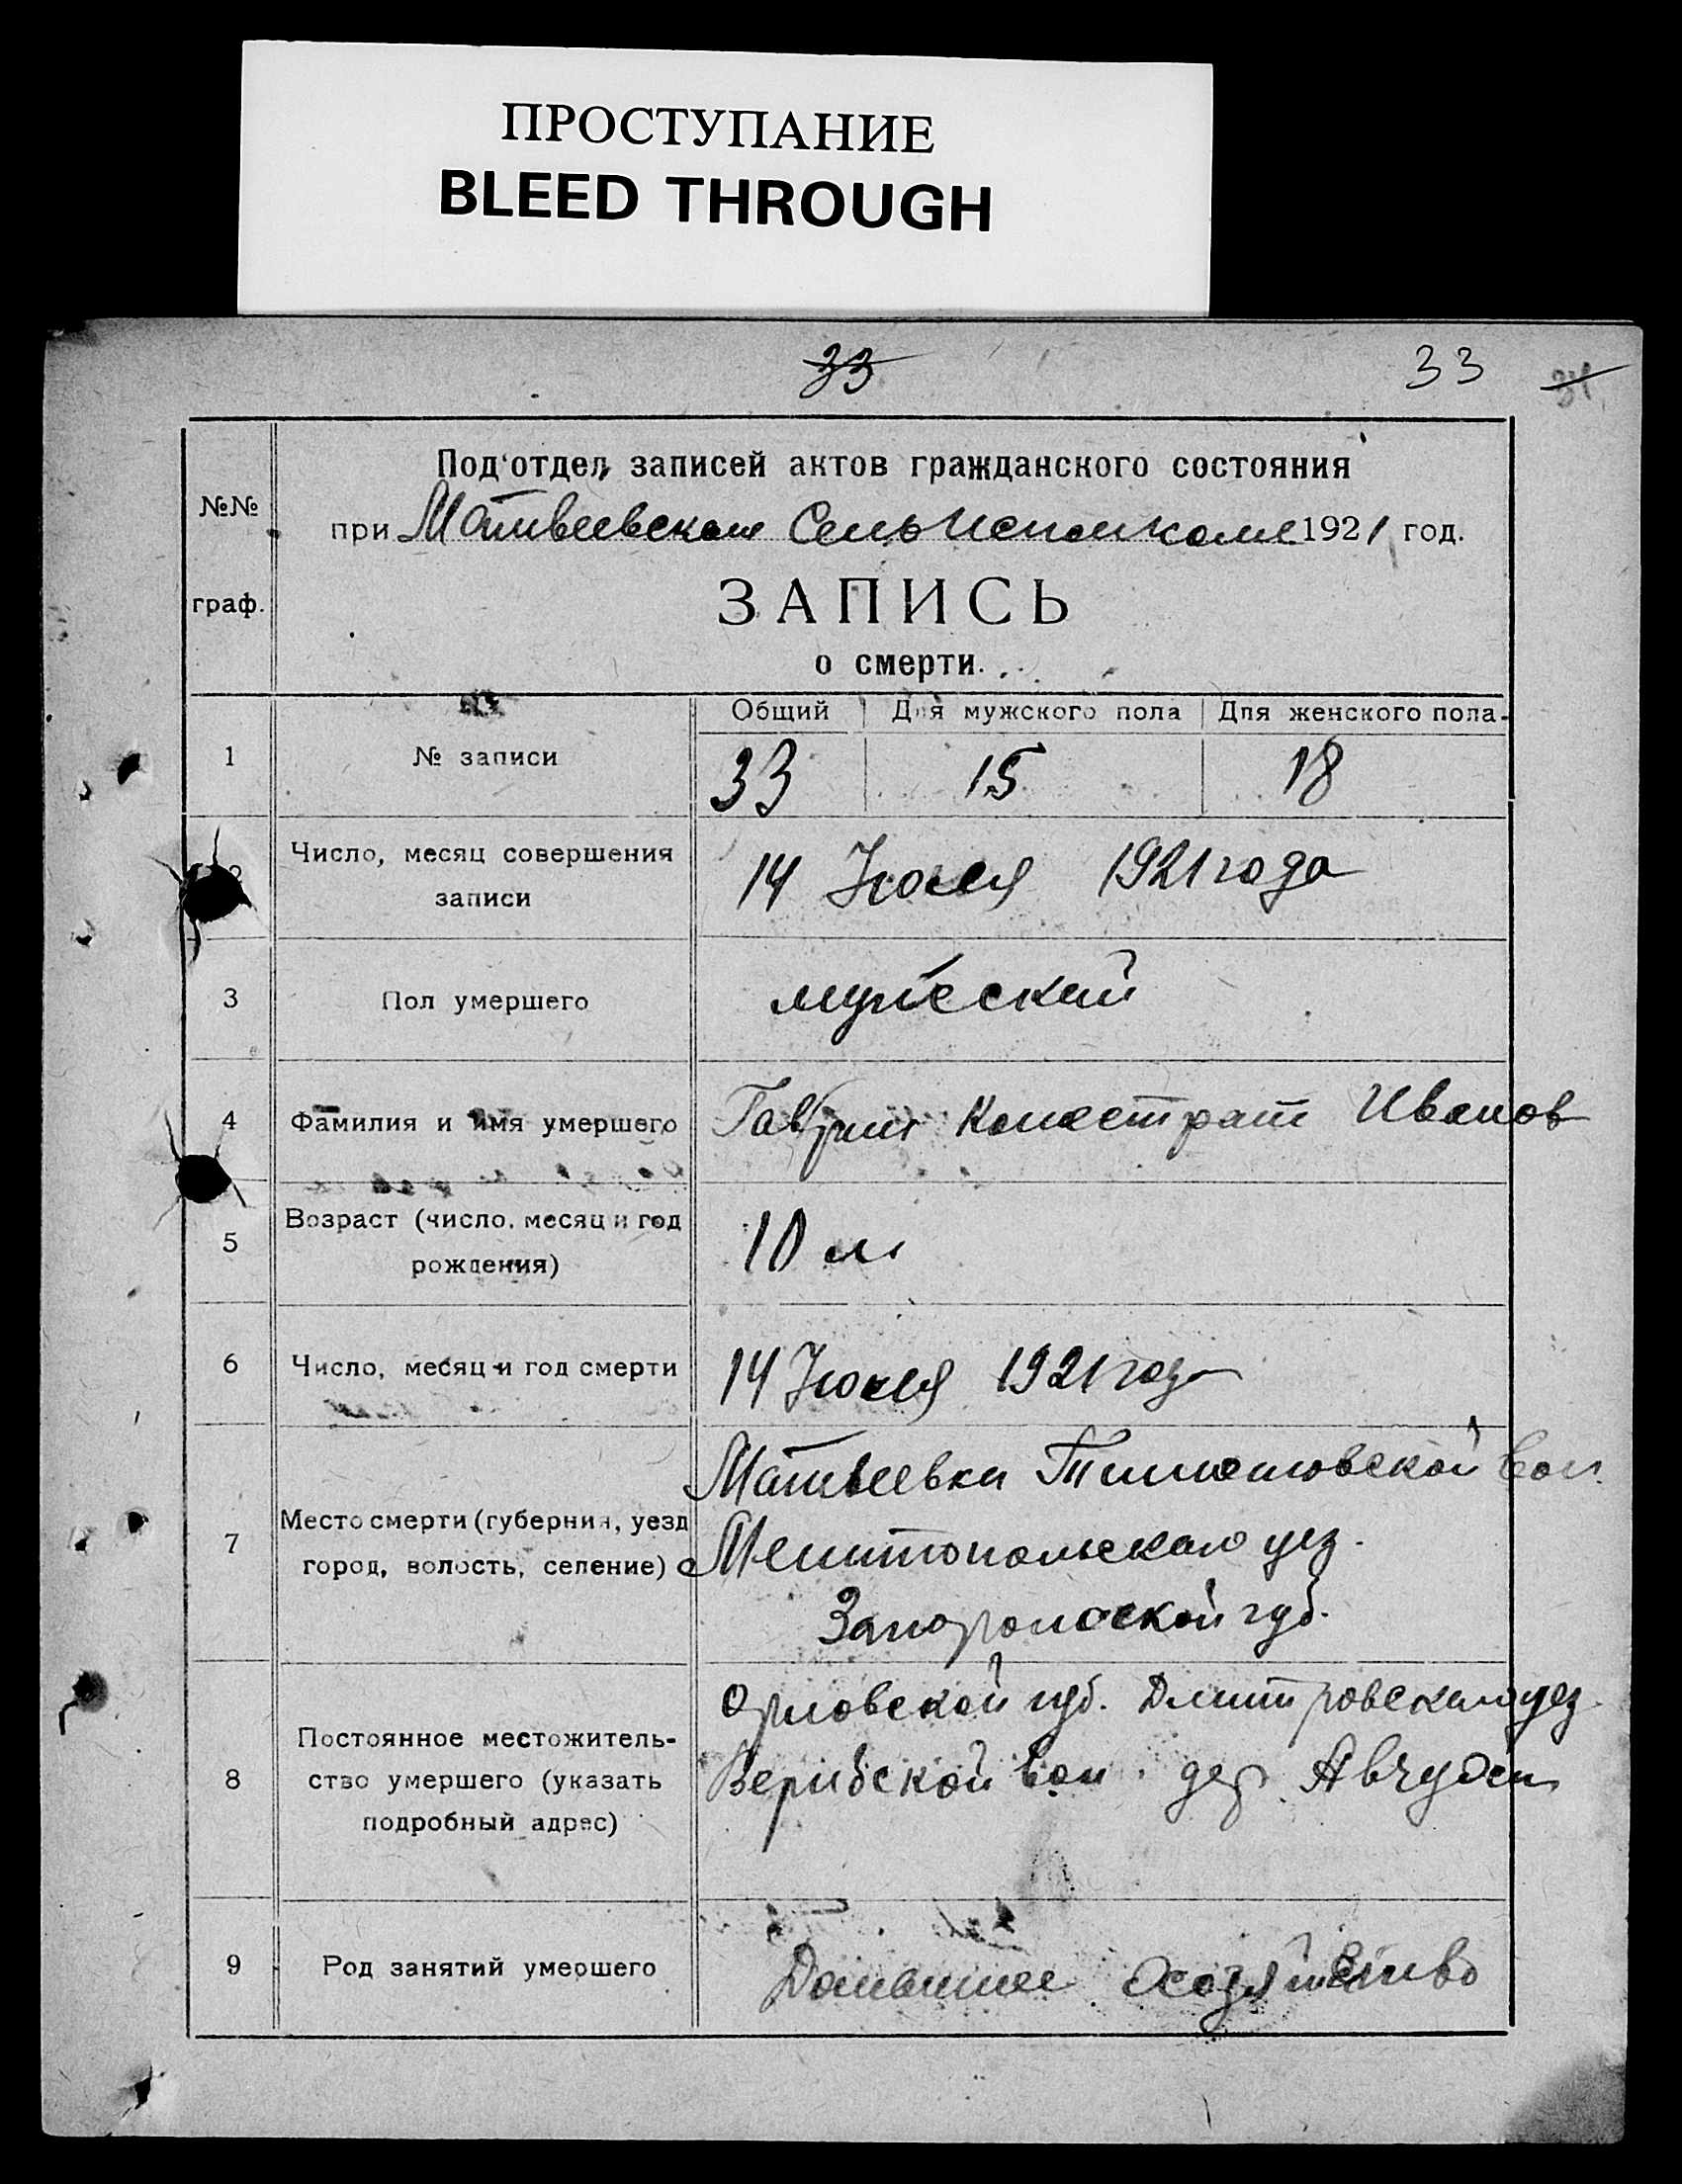 ПРОСТУПАНИЕ
BLEED THROUGH
33
33
31
Под'отдел записей актов гражданского состояния
при Матвеевском Сельисполкоме 1921 год.
№№
граф.
ЗАПИСЬ
о смерти.
Общий Для мужского пола Для женского пола.
1 № записи 33 15 18
2 Число, месяц совершения
записи
14 Июля 1921 года
3 Пол умершего мужеский
4 Фамилия и имя умершего Калистрат Иванов
5 Возраст (число, месяц и год
рождения)
10 м
6 Число, месяц и год смерти 14 Июля 1921 года
7 Место смерти (губерния, уезд
город, волость, селение)
Матвеевки Тимошовской вол.
Мелитопольскаго уез.
Запорожской губ.
8 Постоянное местожитель-
ство умершего (указать
подробный адрес)
Орловской губ. Дмитровскаго уез.
вол. дер.
9 Род занятий умершего Домашнее хозяйство